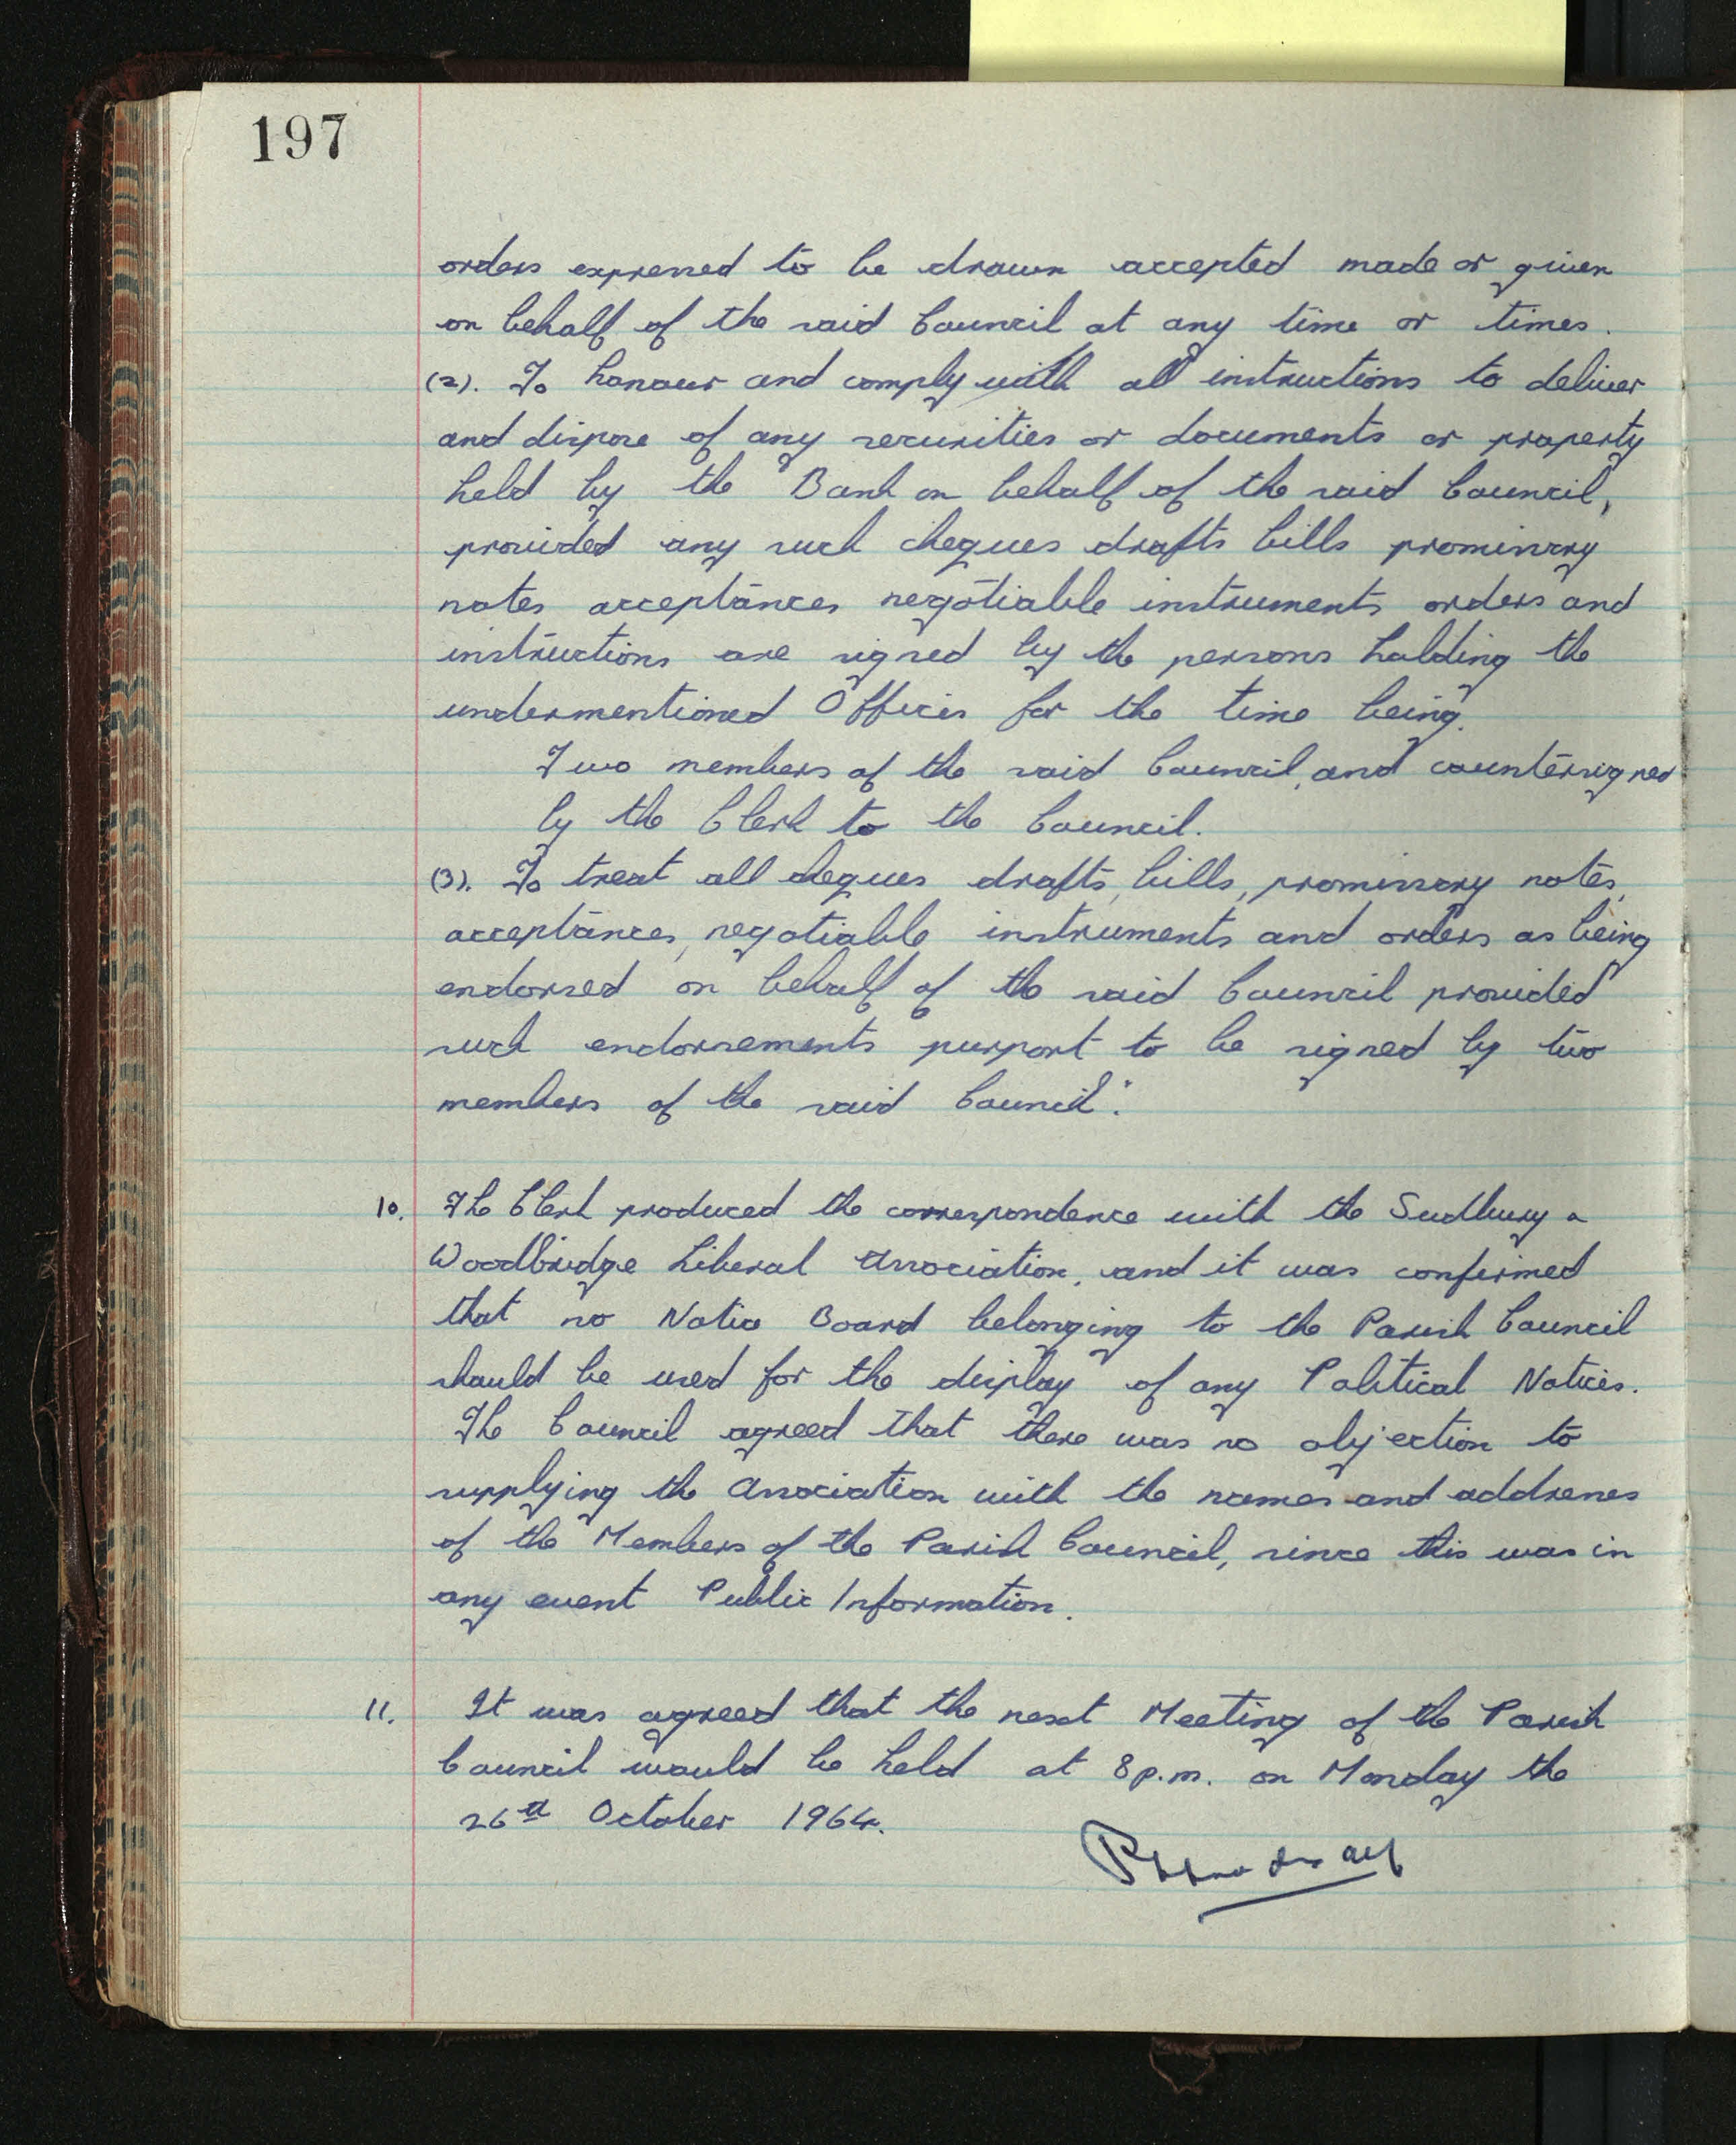 197
orders expressed to be drawn accepted made or given
on behalf of the said Council at any time or times.
(2). To honour and comply with all instructions to deliver
and dispose of any securities or documents or property
held by the Bank on behalf of the said Council,
provided any such cheques drafts bills promissory
notes acceptances negotiable instruments orders and
instructions are signed by the persons holding the
undermentioned Offices for the time being.
Two members of the said Council, and countersigned
by the Clerk to the Council.
(3). To treat all cheques drafts, bills, promissory notes,
acceptances, negotiable instruments and orders as being
endorsed on behalf of the said Council provided
such endorsements purport to be signed by two
members of the said Council".
10. The Clerk produced the correspondence with the Sudbury &
Woodbridge Liberal Association, and it was confirmed
that no Notice Board belonging to the Parish Council
should be used for the display of any Political Notices.
The Council agreed that there was no objection to
supplying the Association with the names and addresses
of the Members of the Parish Council, since this was in
any event Public Information.
11. It was agreed that the next Meeting of the Parish
Council would be held at 8 p.m. on Monday the
26th October 1964.